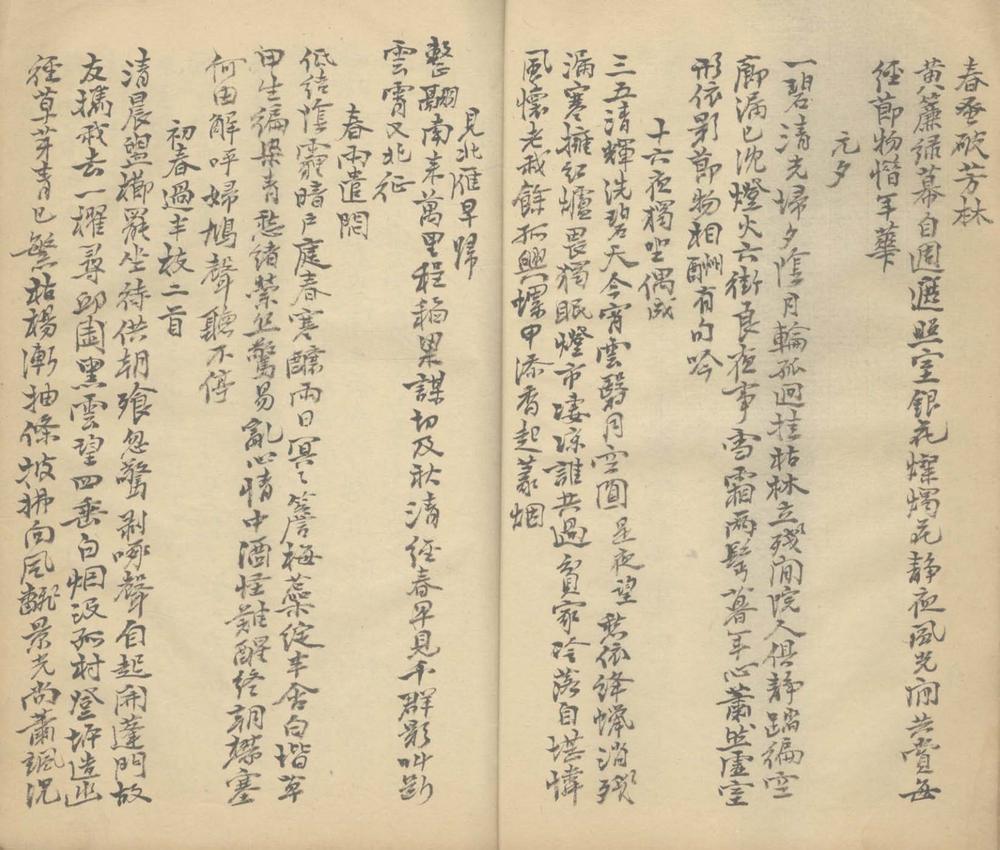 春蚕破芳林
黄簾绿幕自週遮照室銀花燦燭花静夜風光间共賞每
徑節物惜年華
元夕
一碧清光埽夕陰月輪孤迥挂枯林立殘閒院人俱静踏徧空
廊漏已沈燈火六街良夜事雪霜兩鬂暮年心蕭然虚室
形依影節物相酬有句吟
十六夜獨坐偶成
三五清輝洗碧天今宵雲翳月空圓是夜望愁依絳蠟消殘
漏寒擁紅爐畏獨眠燈市凄凉誰共過貧家冷落自堪憐
風懷老我餘孤興螺甲添香起篆烟
見北雁早歸
整翮南来萬里程稻粱謀切及秋清經春早見千群影叫斷
雲霄又北征
春雨遣悶
低结陰霾暗戶庭春寒釀雨日冥々簷梅蘂綻半含白堦草
甲生徧染青愁緒縈丝驚易亂心情中酒怪難醒终朝襟塞
何由解呼婦鳩聲聽不停
初春過半枝二首
清晨盥櫛罷坐待供朝飱忽驚剥啄聲自起開蓬門故
友攜我去一櫂尋邱園黑雲望四垂白烟沒孤村登埗造幽
徑草芽青已繁枯楊漸抽條披拂向風翻景光尚蕭諷況